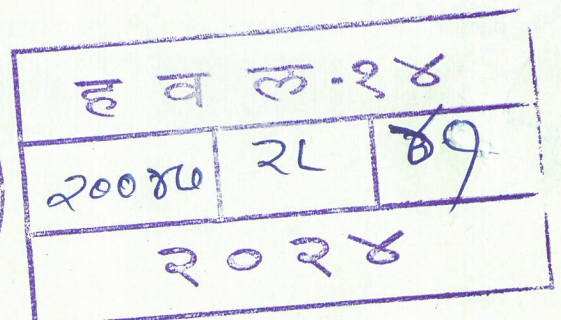 ह व ल-१४
२००४७ २८ ४१
२०२४